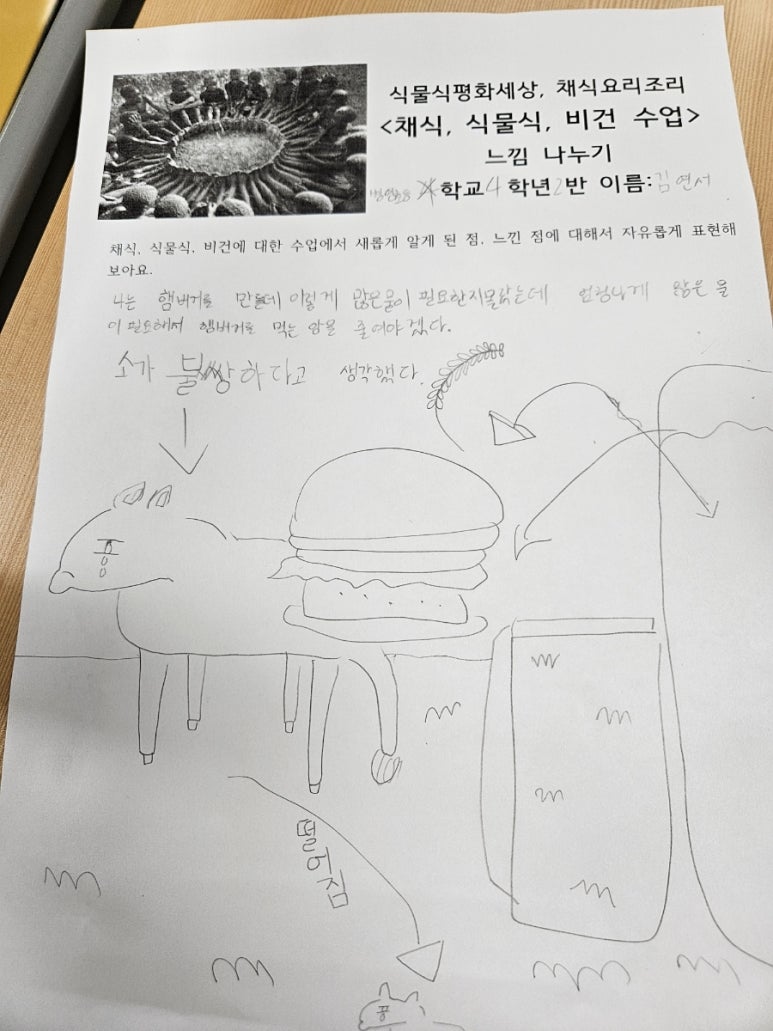 식물식평화세상, 채식요리조리
<채식, 식물식, 비건 수업>
느낌 나누기
학교 4 학년 2 반 이름: 김연서
채식, 식물식, 비건에 대한 수업에서 새롭게 알게 된 점, 느낀 점에 대해서 자유롭게 표현해
보아요.
나는 햄버거를 만든데 이렇게 많은물이 필요한지몰랐는데 엄청나게 많은 물
이 필요해서 햄버거를 먹는 양을 줄여야겠다.
소가 불쌍하다고 생각했다.
퐁
떨어짐
퐁